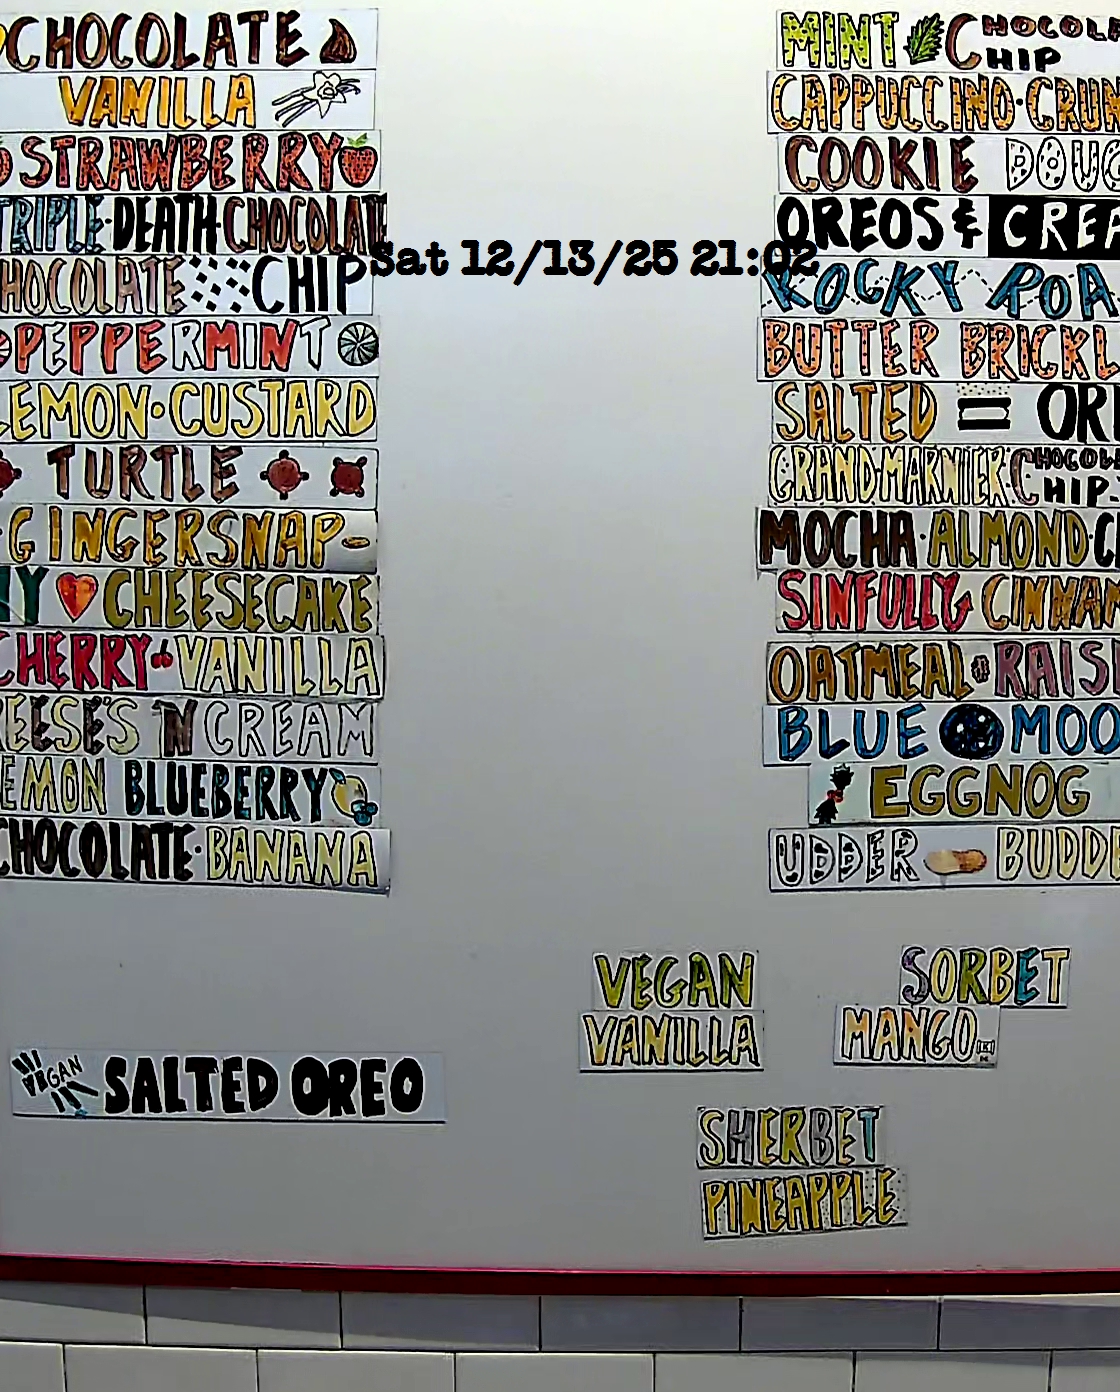 CHOCOLATE
VANILLA
STRAWBERRY
TRIPLE·DEATH·CHOCOLATE
CHOCOLATE CHIP
PEPPERMINT
LEMON·CUSTARD
TURTLE
GINGERSNAP
CHEESECAKE
CHERRY VANILLA
REESE'S 'N CREAM
LEMON BLUEBERRY
CHOCOLATE·BANANA
Sat 12/13/25 21:02
MINT CHOCOLA
CHIP
CAPPUCCINO·CRUN
COOKIE DOUG
OREOS & CREA
ROCKY ROA
BUTTER BRICKL
SALTED ORE
GRAND·MARNIER·CHOCOLA
CHIP
MOCHA·ALMOND·CH
SINFULLY CINNAM
OATMEAL RAISI
BLUE MOO
EGGNOG
UDDER BUDDE
VEGAN
VANILLA
SORBET
MANGO
VEGAN SALTED OREO
SHERBET
PINEAPPLE